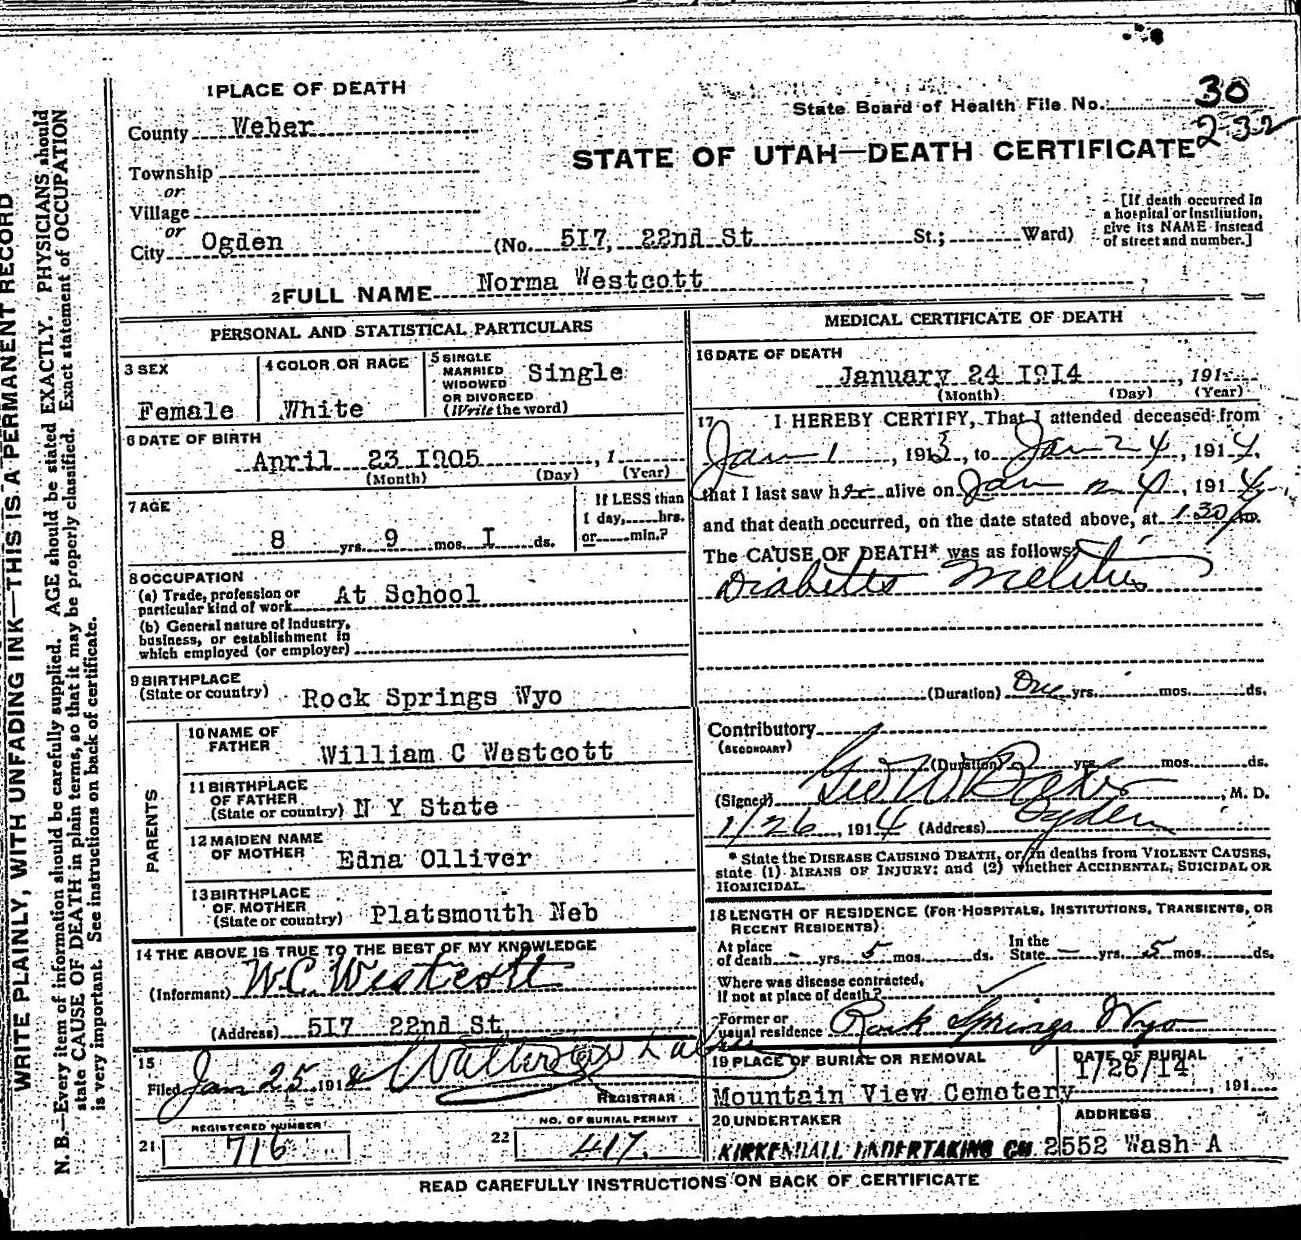 1 PLACE OF DEATH
State Board of Health File No. 30
232
County Weber
STATE OF UTAH—DEATH CERTIFICATE
Township
or
Village
or
City Ogden (No. 5I7, 22nd St St.; Ward)
[If death occurred in
a hospital or institution,
give its NAME instead
of street and number.]
2 FULL NAME Norma Westcott
PERSONAL AND STATISTICAL PARTICULARS
3 SEX
Female
4 COLOR OR RACE
White
5 SINGLE
MARRIED
WIDOWED
OR DIVORCED
(Write the word)
Single
6 DATE OF BIRTH
April 23 I905, 1
(Month) (Day) (Year)
7 AGE
8 yrs. 9 mos. I ds.
If LESS than
1 day, hrs.
or min.?
8 OCCUPATION
(a) Trade, profession or
particular kind of work At School
(b) General nature of industry,
business, or establishment in
which employed (or employer)
9 BIRTHPLACE
(State or country) Rock Springs Wyo
PARENTS
10 NAME OF
FATHER
William C Westcott
11 BIRTHPLACE
OF FATHER
(State or country) N Y State
12 MAIDEN NAME
OF MOTHER
Edna Olliver
13 BIRTHPLACE
OF MOTHER
(State or country) Platsmouth Neb
14 THE ABOVE IS TRUE TO THE BEST OF MY KNOWLEDGE
(Informant) W.C. Westcott
(Address) 5I7 22nd St
15
Filed Jan 25, 191
REGISTRAR
REGISTERED NUMBER
21 716
NO. OF BURIAL PERMIT
22 417.
MEDICAL CERTIFICATE OF DEATH
16 DATE OF DEATH
January 24 I9I4, 191
(Month) (Day) (Year)
17 I HEREBY CERTIFY, That I attended deceased from
Jan 1, 1913, to Jan 24, 1914,
that I last saw her alive on Jan 24, 1914,
and that death occurred, on the date stated above, at 1.30 m.
The CAUSE OF DEATH* was as follows:
Diabetes Melitus
(Duration) One yrs. mos. ds.
Contributory
(SECONDARY)
(Duration) yrs. mos. ds.
(Signed) Geo W. Baker, M. D.
1/26, 1914 (Address) Ogden
* State the DISEASE CAUSING DEATH, or, in deaths from VIOLENT CAUSES,
state (1) MEANS OF INJURY; and (2) whether ACCIDENTAL, SUICIDAL OR
HOMICIDAL.
18 LENGTH OF RESIDENCE (FOR HOSPITALS, INSTITUTIONS, TRANSIENTS, OR
RECENT RESIDENTS)
At place
of death - yrs. 5 mos. ds. In the
State - yrs. 5 mos. ds.
Where was disease contracted,
If not at place of death?
Former or
usual residence Rock Springs Wyo
19 PLACE OF BURIAL OR REMOVAL
Mountain View Cemetery
DATE OF BURIAL
1/26/14, 191
20 UNDERTAKER
KIRKENDALL UNDERTAKING CO.
ADDRESS
2552 Wash A
READ CAREFULLY INSTRUCTIONS ON BACK OF CERTIFICATE
WRITE PLAINLY, WITH UNFADING INK—THIS IS A PERMANENT RECORD
N. B.—Every item of information should be carefully supplied. AGE should be stated EXACTLY. PHYSICIANS should
state CAUSE OF DEATH in plain terms, so that it may be properly classified. Exact statement of OCCUPATION
is very important. See instructions on back of certificate.